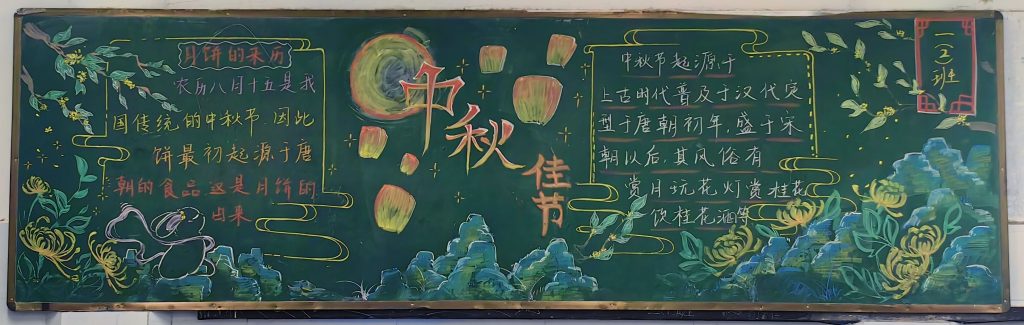 月饼的来历
农历八月十五是我
国传统的中秋节,因此
饼最初起源于唐
朝的食品这是月饼的
由来
中秋
佳节
中秋节起源于
上古时代普及于汉代定
型于唐朝初年,盛于宋
朝以后,其风俗有
赏月玩花灯赏桂花
饮桂花酒等
一2班